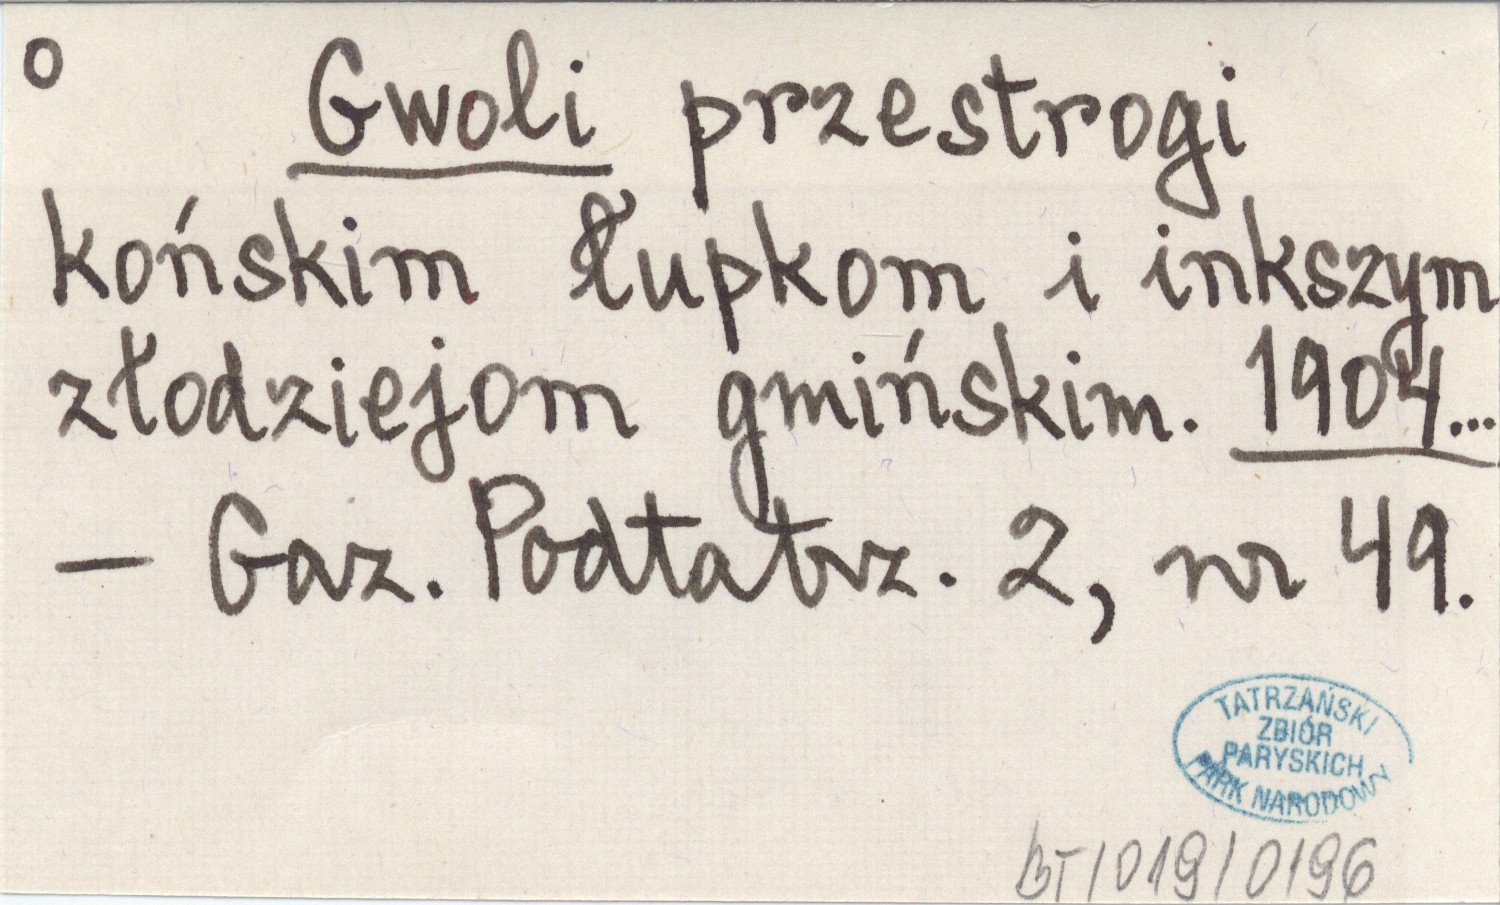 o Gwoli przestrogi
końskim łupkom i inkszym
złodziejom gmińskim. 1904...
— Gaz. Podtatrz. 2, nr 49.
TATRZAŃSKI
ZBIÓR
PARYSKICH
PARK NARODOWY
BT/019/0196